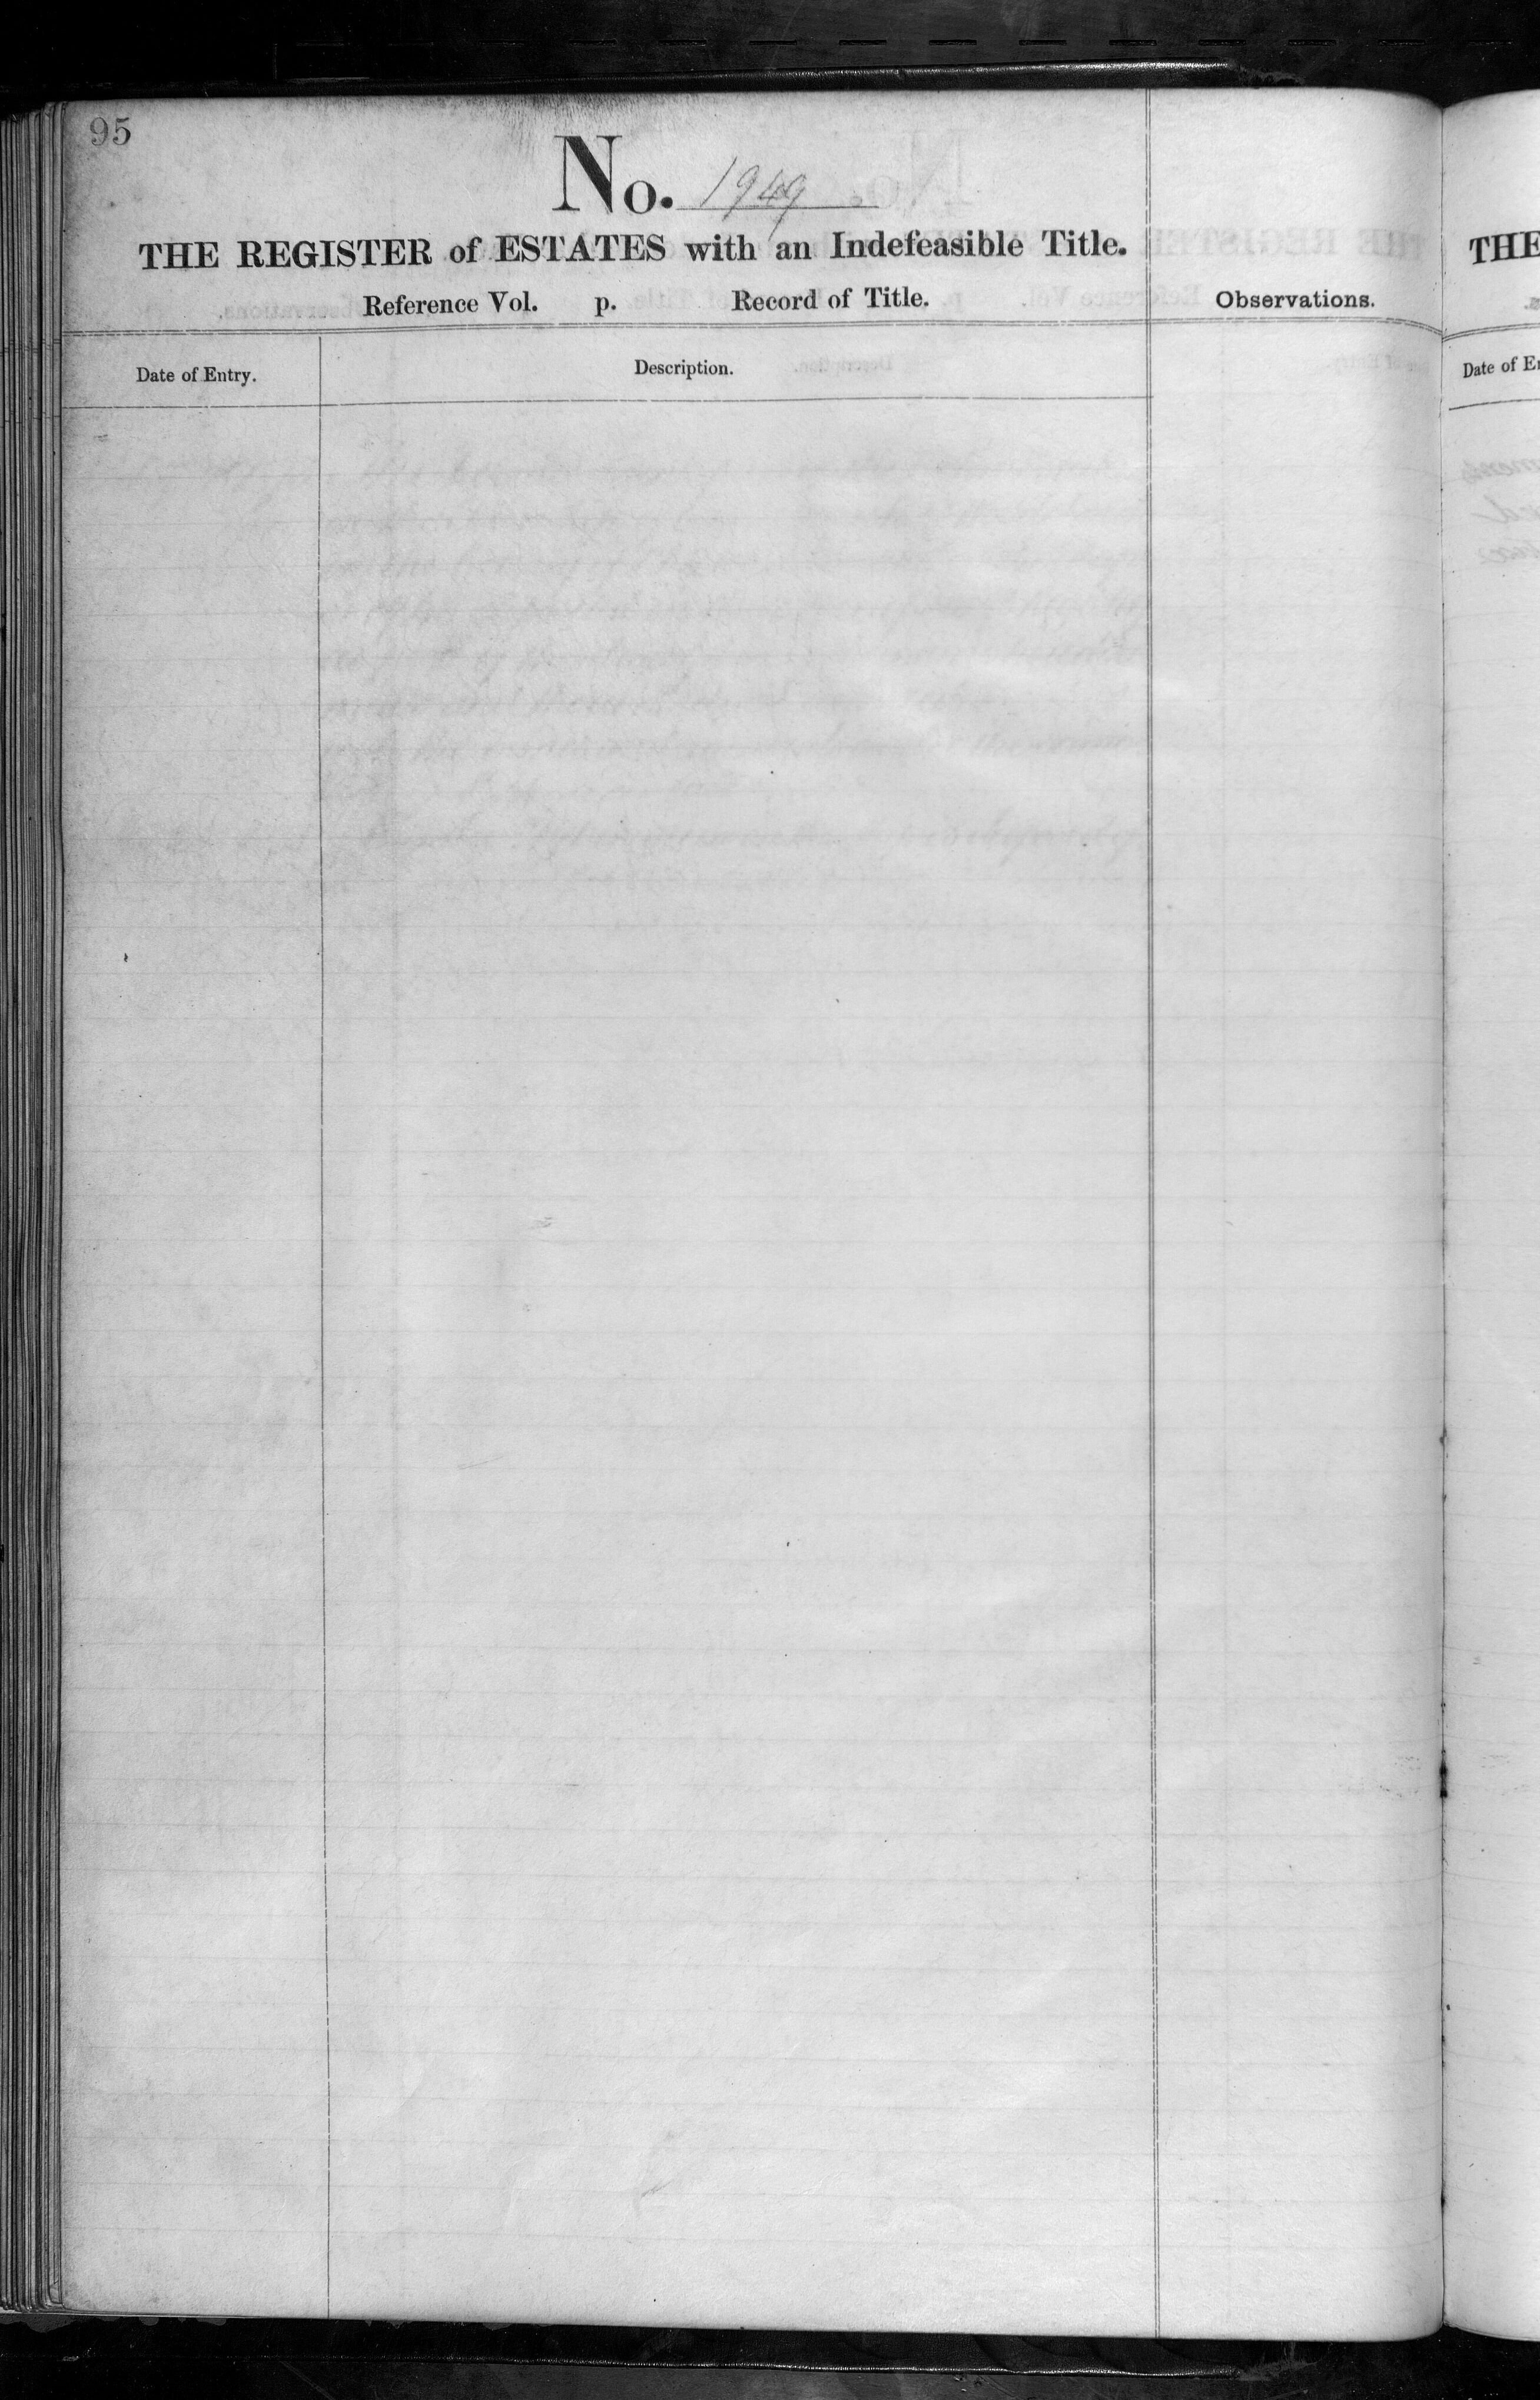 95
No. 1949
THE REGISTER of ESTATES with an Indefeasible Title.
Reference Vol. p. Record of Title.
Observations.
Date of Entry.
Description.
THE
Date of En